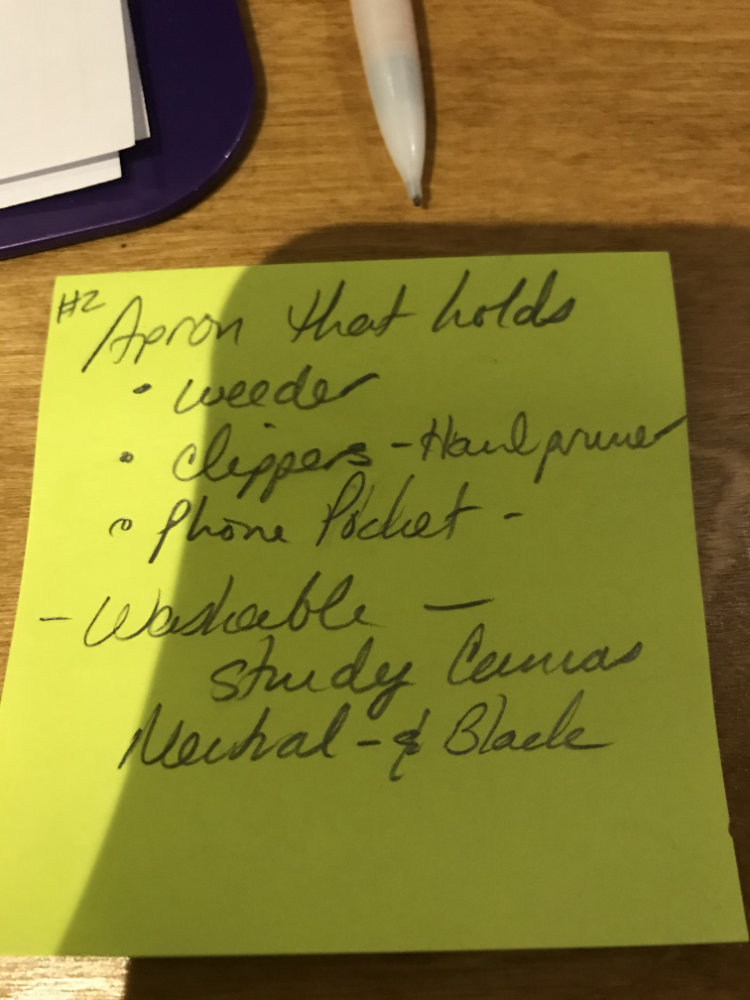 #2 Apron that holds
• weeder
• clippers - Hand pruner
• Phone Pocket -
- Washable —
study Canvas
Neutral - & Black